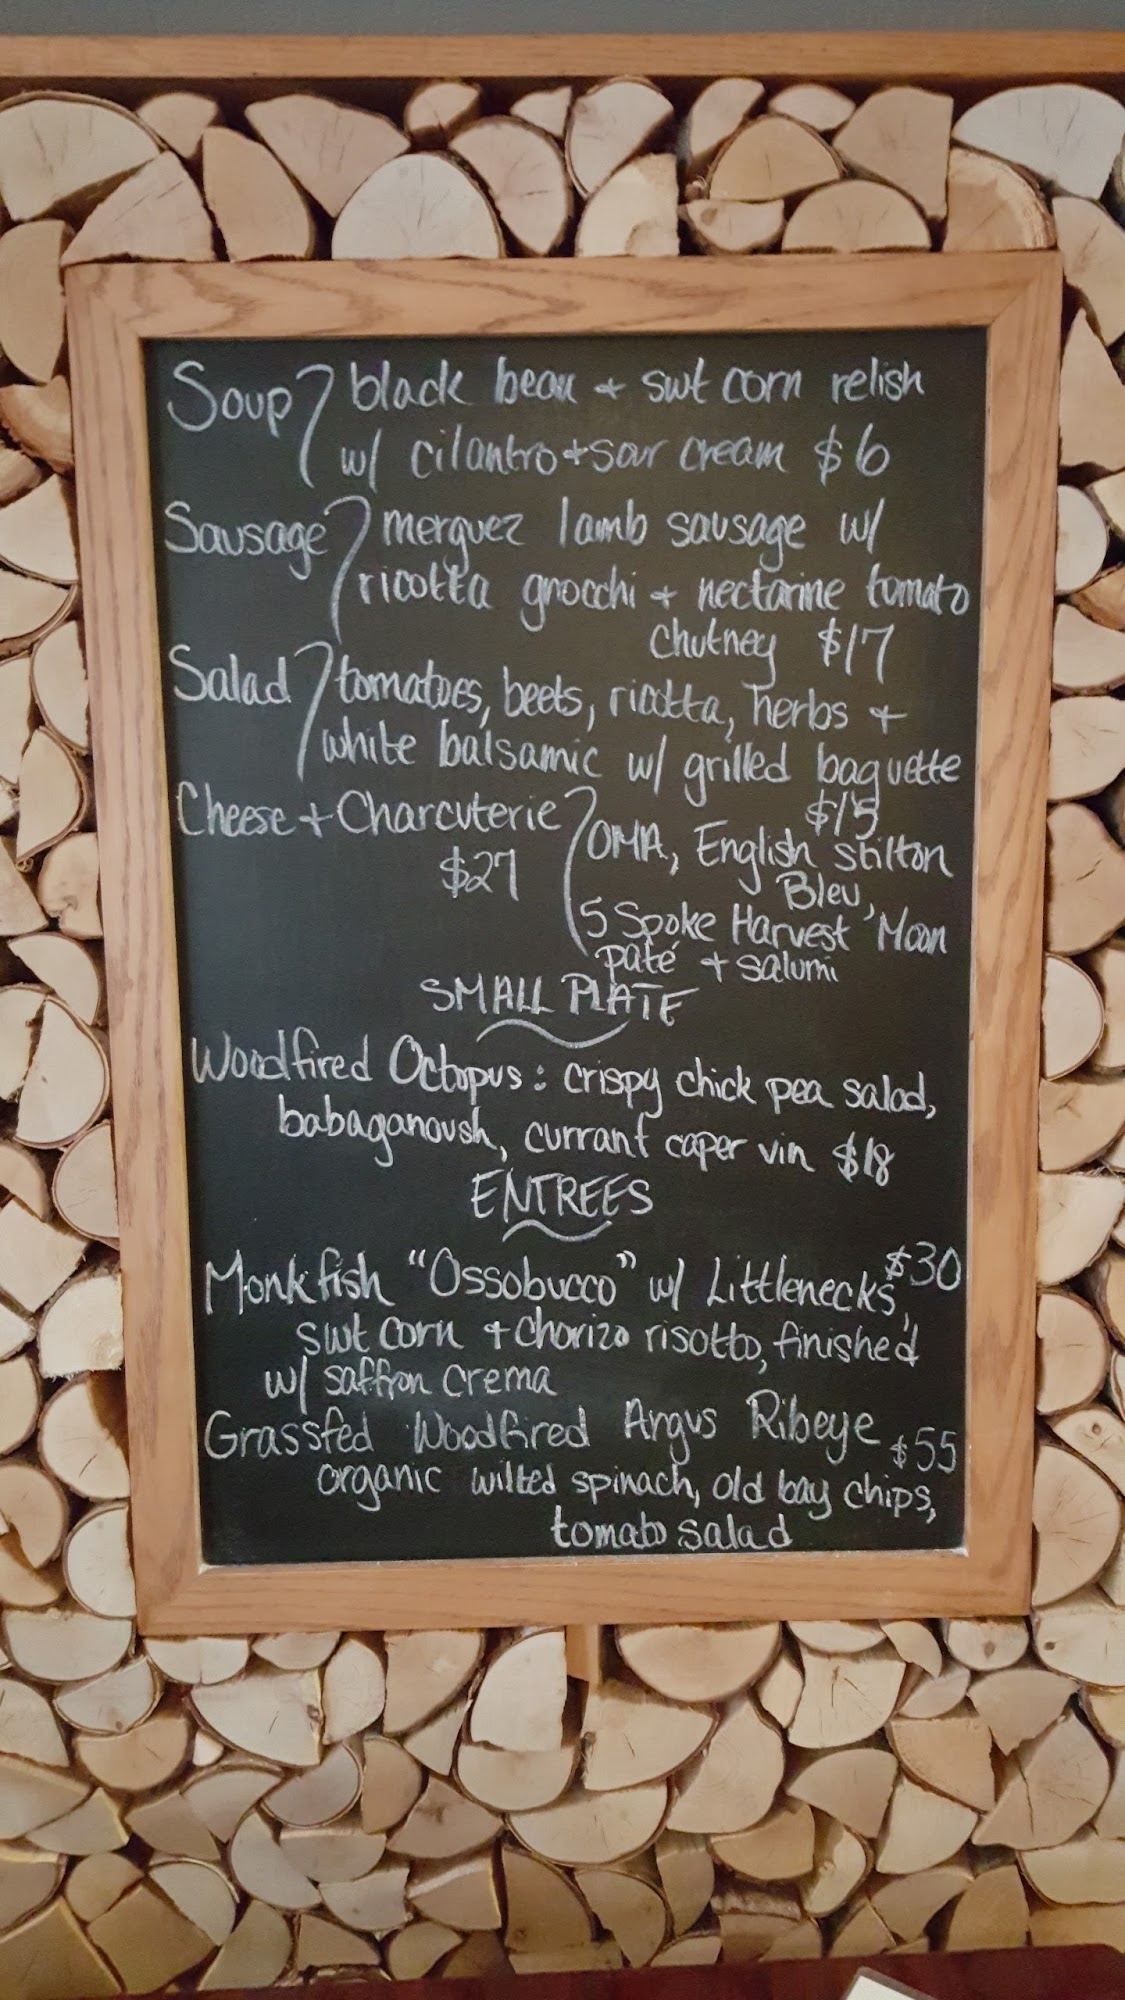 Soup black bean + swt corn relish
w/ cilantro + sour cream $6
Sausage merguez lamb sausage w/
ricotta gnocchi + nectarine tomato
chutney $17
Salad tomatoes, beets, ricotta, herbs +
white balsamic w/ grilled baguette
$15
Cheese + Charcuterie OMA, English stilton
$27 Bleu,
5 Spoke Harvest Moon
paté + salumi
SMALL PLATE
Woodfired Octopus: crispy chick pea salad,
babaganoush, currant caper vin $18
ENTREES
Monkfish "Ossobucco" w/ Littlenecks, $30
swt corn + chorizo risotto, finished
w/ saffron crema
Grassfed Woodfired Angus Ribeye $55
organic wilted spinach, old bay chips,
tomato salad